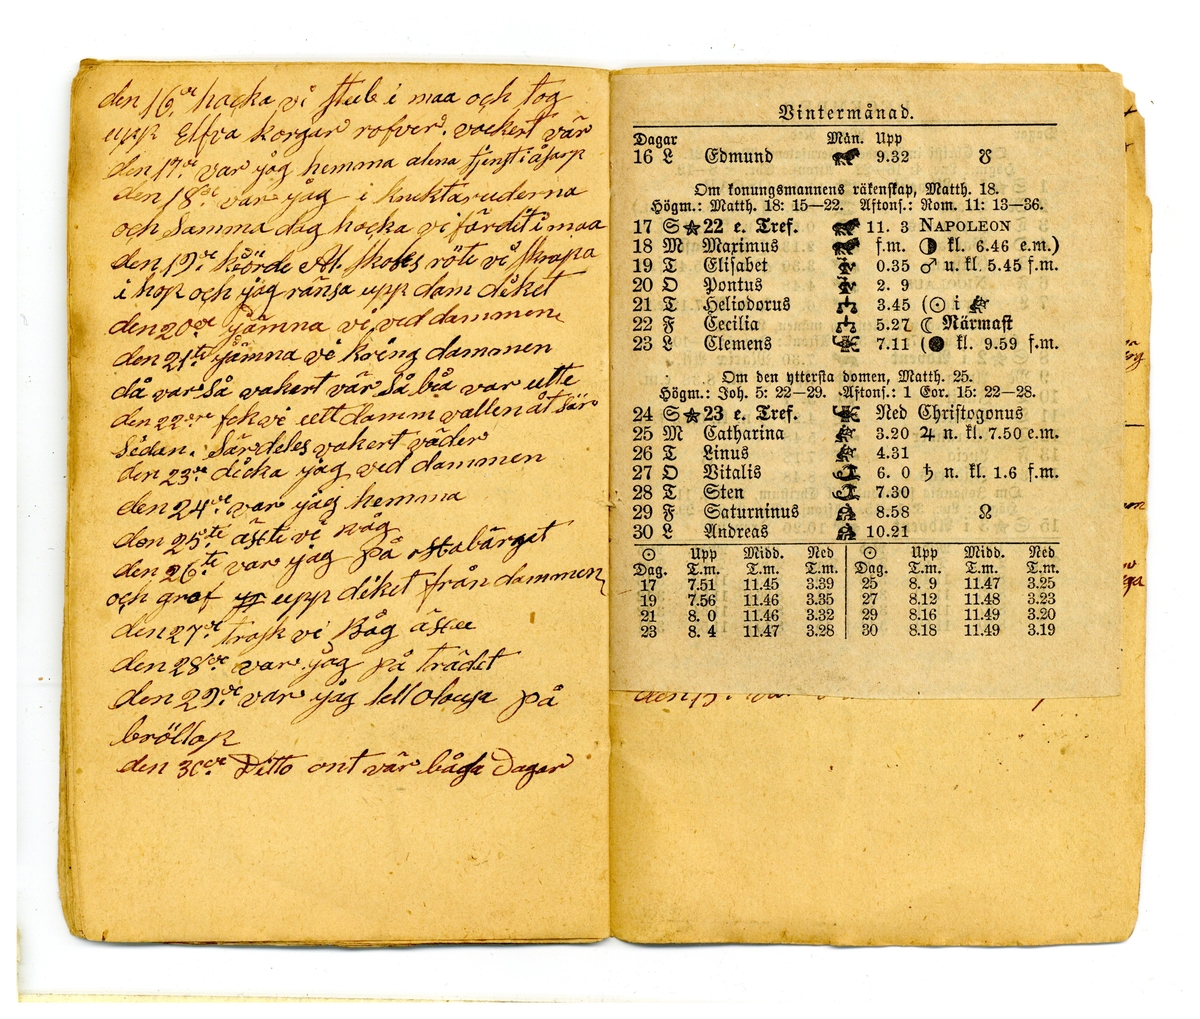 den 16de hacka vi stub i maa och tog
upp Elfva korgar rofver. vackert vär
den 17de var jåg hemma alena
den 18de var jåg i knektaruderna
och samma dag hacka vi färdit i maa
den 19de körde At. röte vi skrapa
i hop och jåg ransa upp dam diket
den 20de jämna vi ved dammen
den 21te jämna vi kring dammen
då var så vakert vär så bå var utte
den 22dre fek vi ett damm vallen åt sär
Sedan. Särdeles vakert väder
den 23de dicka jåg ved dammen
den 24de var jåg hemma
den 25te äste vi Råg
den 26te var jåg på ostabärget
och graf upp diket från dammen
den 27de trosk vi Råg
den 28de var jåg på trädet
den 29de var jåg på
bröllop
den 30de Ditto ont vär båda Dagar
Vintermånad.
Dagar Mån. Upp
16 L Edmund 9.32 ☋
Om konungsmannens räkenskap, Matth. 18.
Högm.: Matth. 18: 15—22. Aftons.: Rom. 11: 13—36.
17 S ★ 22 e. Tref. 11. 3 NAPOLEON
18 M Maximus f.m. ◑ kl. 6.46 e.m.)
19 T Elisabet 0.35 ♂ u. kl. 5.45 f.m.
20 O Pontus 2. 9
21 T Heliodorus 3.45 (☉ i ♐
22 F Cecilia 5.27 ☾ Närmast
23 L Clemens 7.11 (● kl. 9.59 f.m.
Om den yttersta domen, Matth. 25.
Högm.: Joh. 5: 22—29. Aftons.: 1 Cor. 15: 22—28.
24 S ★ 23 e. Tref. Ned Christogonus
25 M Catharina 3.20 ♃ n. kl. 7.50 e.m.
26 T Linus 4.31
27 O Vitalis 6. 0 ♄ n. kl. 1.6 f.m.
28 T Sten 7.30
29 F Saturninus 8.58 ☊
30 L Andreas 10.21
☉ Upp Midd. Ned ☉ Upp Midd. Ned
Dag. T.m. T.m. T.m. Dag. T.m. T.m. T.m.
17 7.51 11.45 3.39 25 8. 9 11.47 3.25
19 7.56 11.46 3.35 27 8.12 11.48 3.23
21 8. 0 11.46 3.32 29 8.16 11.49 3.20
23 8. 4 11.47 3.28 30 8.18 11.49 3.19